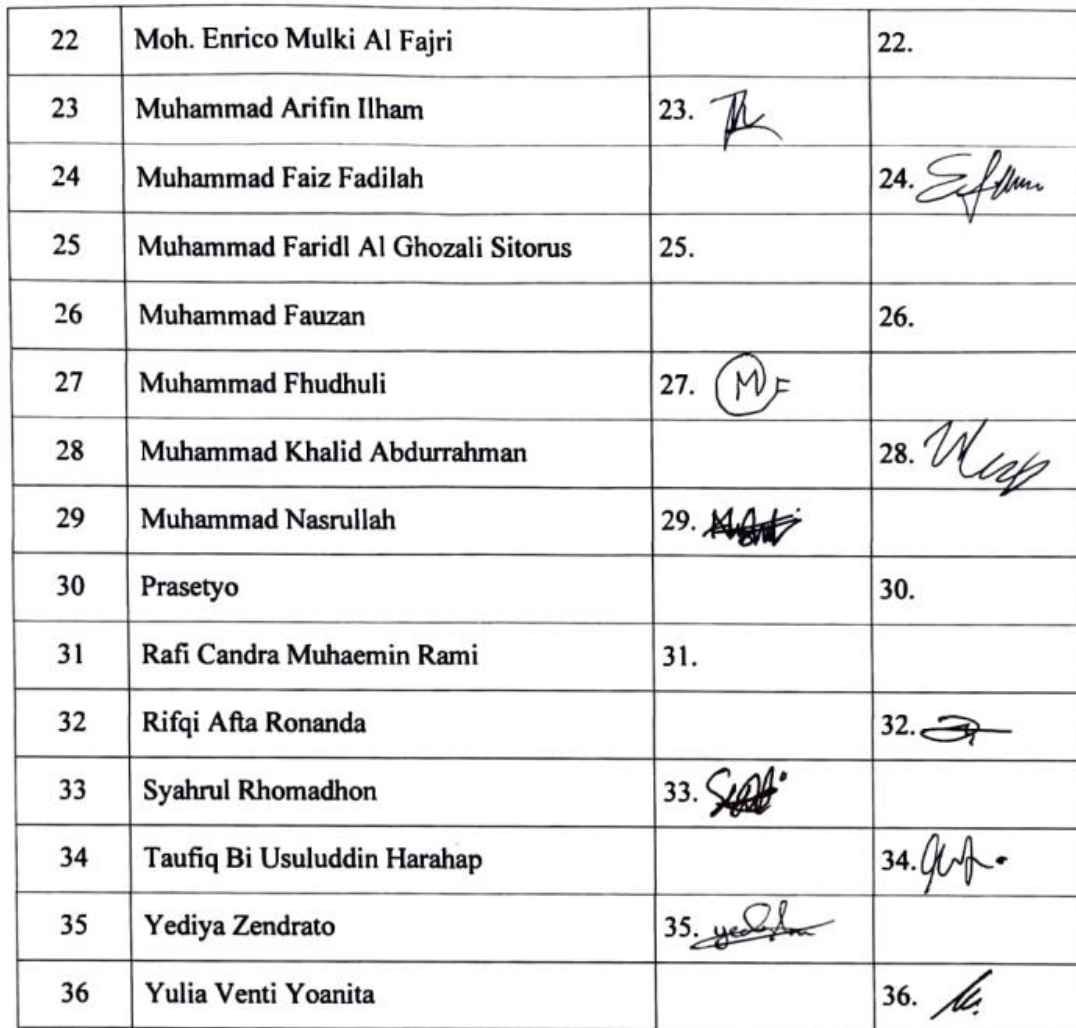 22 Moh. Enrico Mulki Al Fajri 22.
23 Muhammad Arifin Ilham 23.
24 Muhammad Faiz Fadilah 24.
25 Muhammad Faridl Al Ghozali Sitorus 25.
26 Muhammad Fauzan 26.
27 Muhammad Fhudhuli 27. MF
28 Muhammad Khalid Abdurrahman 28.
29 Muhammad Nasrullah 29.
30 Prasetyo 30.
31 Rafi Candra Muhaemin Rami 31.
32 Rifqi Afta Ronanda 32.
33 Syahrul Rhomadhon 33.
34 Taufiq Bi Usuluddin Harahap 34.
35 Yediya Zendrato 35.
36 Yulia Venti Yoanita 36.